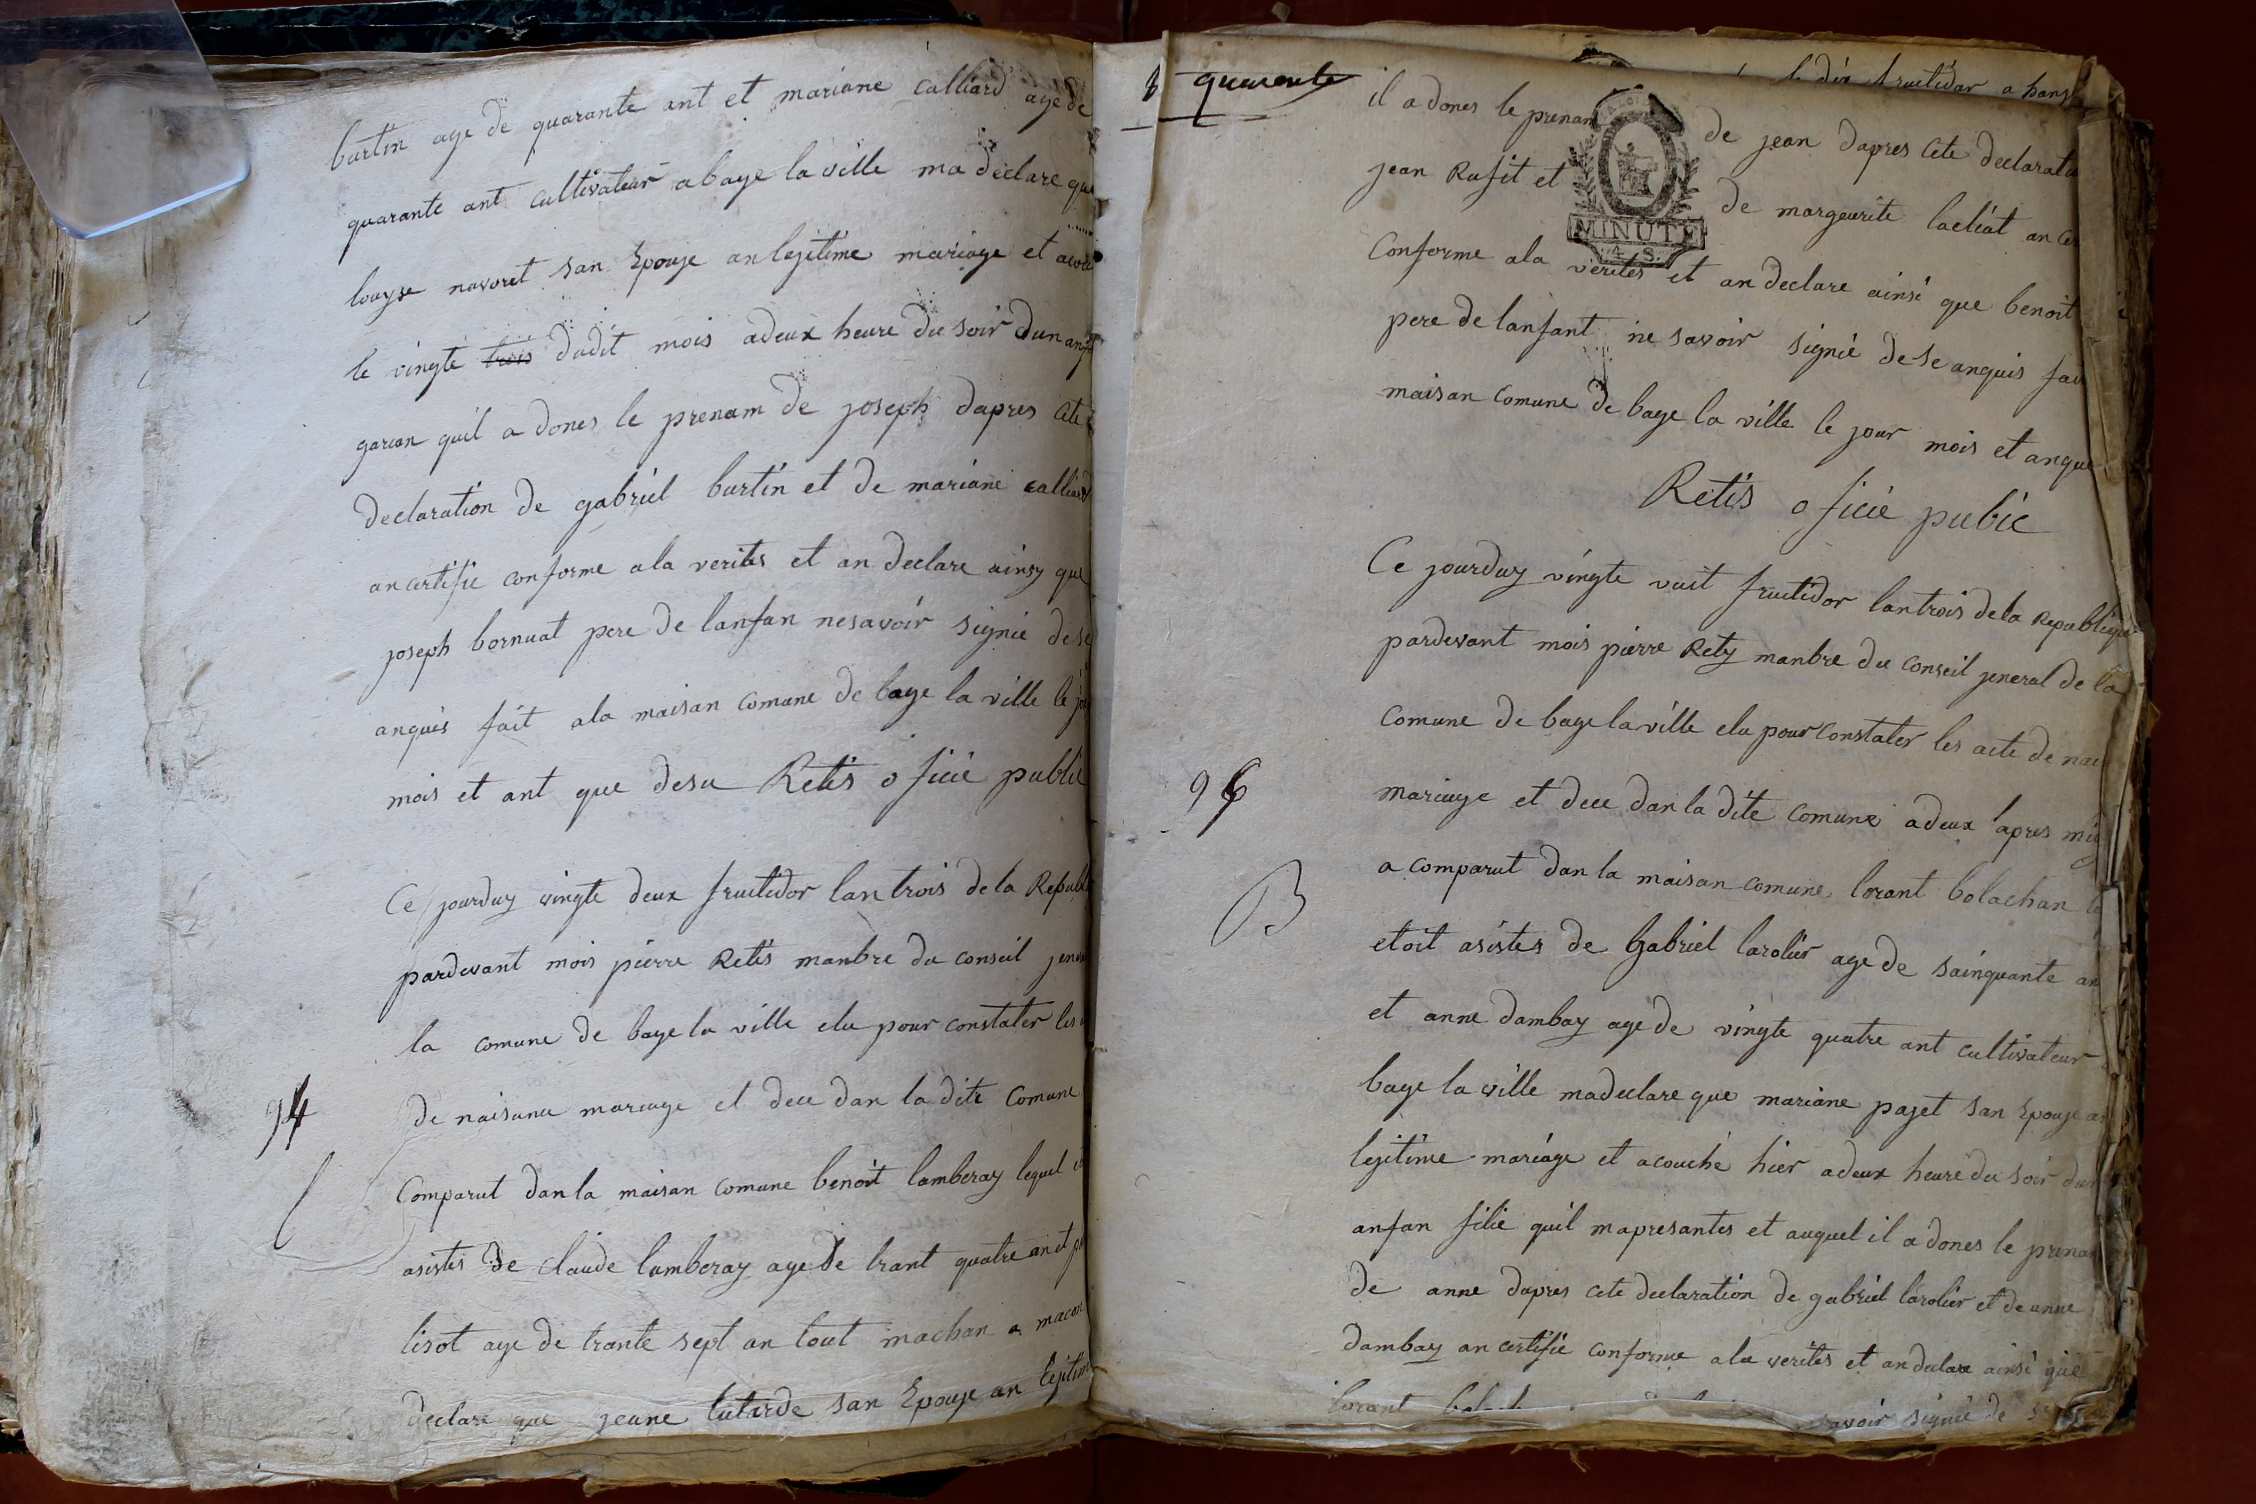 burtin age de quarante ant et mariane calliard age de
quarante ant cultivateur a baye la ville ma declare que
louyse navoret san Epouse an lejitime mariage et
le vingte trois dudit mois adeux heure du soir dun
garcan quil a dones le prenam de joseph dapres cete
declaration de gabriel burtin et de mariane calliard
an certifie conforme ala verites et an declare ainsy que
joseph bornuat pere de lanfan nesavoir signié de se
anquis fait ala maisan comune de baye la ville le
mois et ant que desu Retis oficié public
Ce jourduy vingte deux fructidor lan trois dela
pardevant mois pierre Retis manbre du conseil
la comune de baye la ville elu pour constater les
94
de naisance mariage et dece dan la dite Comune
Comparut dan la maisan comune benoit lamberay lequel
asistes de Claude lamberay age de trant quatre an et
lirot age de trante sept an tout machan a macon
declare que jeane tutarde san Epouse an lejitime
quarente
il a dones le prenam de jean dapres cete
jean Rufit et de margeurite lacliat an
MINUTE
4 S.
Conforme ala verites et an declare ainsi que benoit
pere de lanfant ne savoir signié de se anquis
maisan comune de baye la ville le jour mois et an que
Retis oficié pubic
Ce jourduy vingte vuit fructidor lan trois dela Republique
pardevant mois pierre Rety manbre du conseil jeneral de la
comune de baye la ville elu pour constater les acte de
96
mariage et dece dan la dite comune adeux lapres
B
a comparut dan la maisan comune lorant bolachan
etoit asistes de gabriel larolier age de sainquante an
et anne dambay age de vingte quatre ant cultivateur
baye la ville madeclare que mariane pajet san Epouse
lejitime mariage et acouché hier adeux heure du soir
anfan filie quil mapresantes et auquel il a dones le prenam
de anne dapres cete declaration de gabriel larolier et de anne
dambay an certifie conforme ala verites et an declare ainsi que
lorant savoir signié de